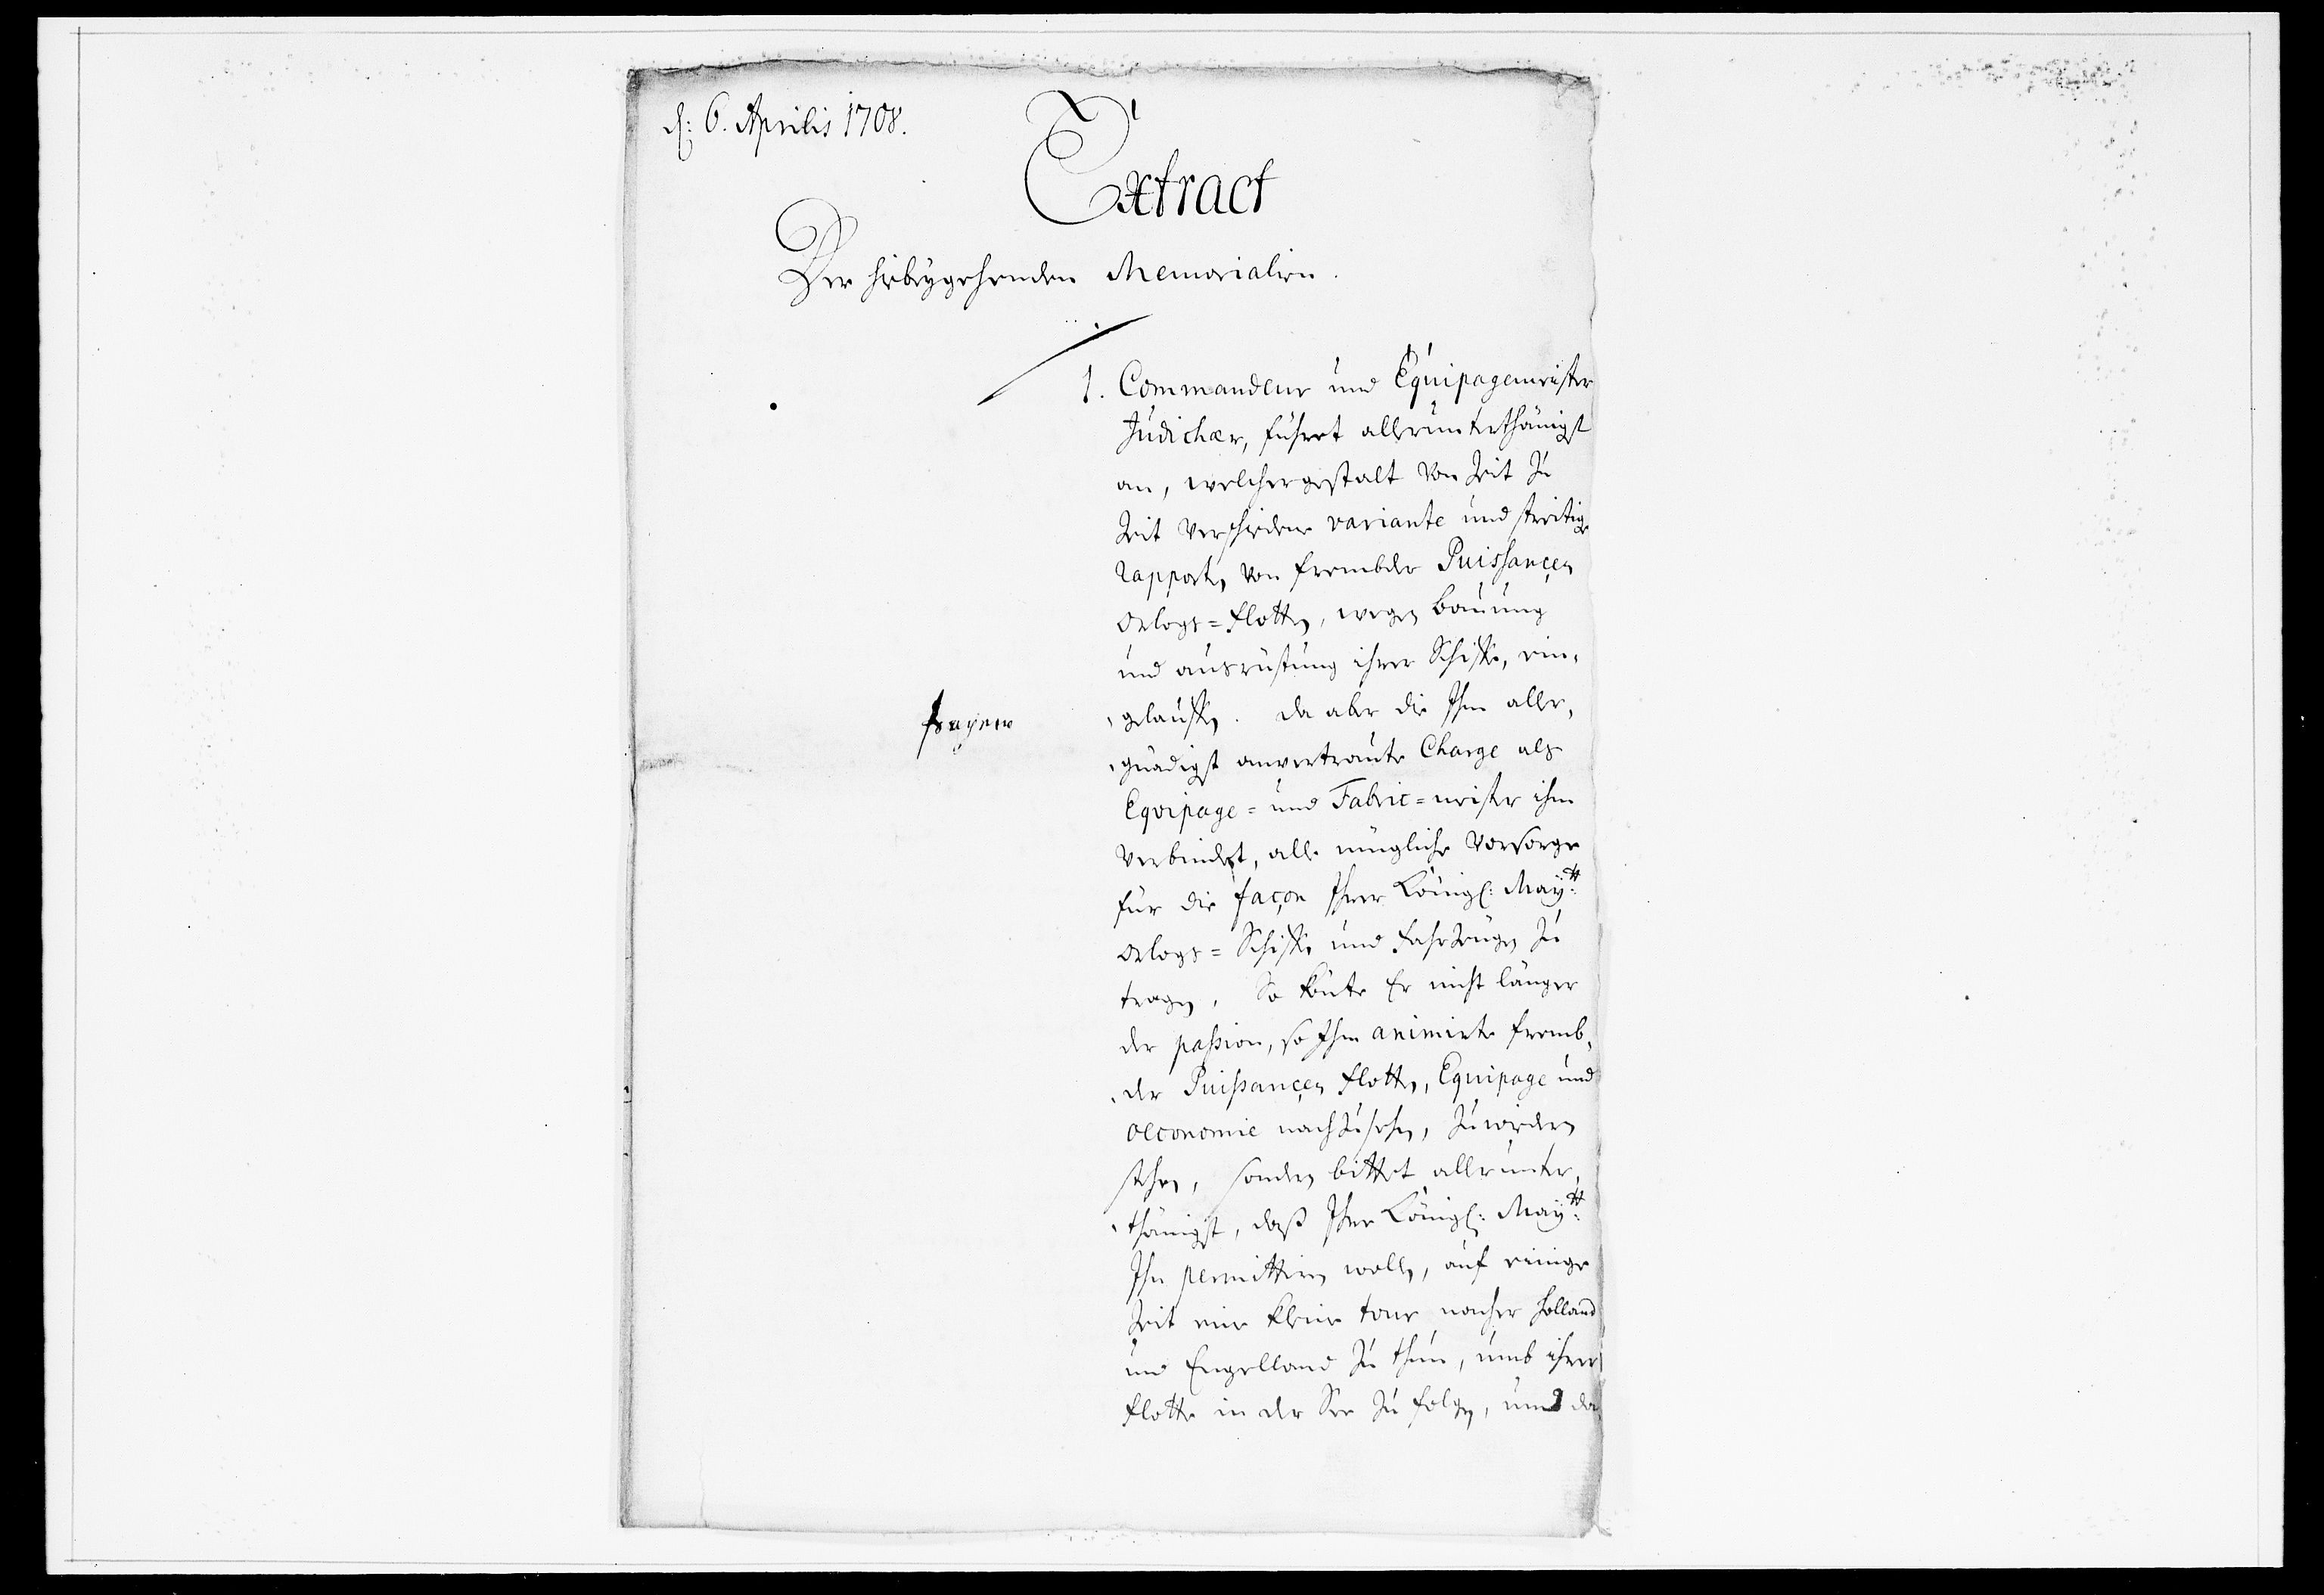 d: 6. Aprilis 1708.
Extract
Der hiebeygehenden Memorialien.
1. Commandeur und Equipagemeister
Judichær, führet allerunterthänigst
an, welchergestalt von Zeit zu
Zeit verschiedene variante und streitige
rapporten von frembder Puissancen
Orlogs=Flotten, wegen bauung
und ausrüstung ihrer Schiffe, ein-
gelauffen. Da aber die Ihm aller-
gnädigst anvertraute Charge als
Eqvipage= und Fabric=meister ihn
verbindet, alle mügliche Vorsorge
für die façon Ihrer Königl: Maytt:
Orlogs=Schiffe und Fahrzeugen zu
tragen, So könte Er nicht länger
der passion, so Ihm animirte fremb-
der Puissancen Flotten, Equipage und
oeconomie nachzusehen, zuwieder
stehen, sondern bittet allerunter-
thänigst, daß Ihre Königl: Maytt:
Ihn permittiren wollen, auf einige
Zeit eine kleine tour nacher Holland
und Engelland zu thun, umb ihrer
Flotte in der See zu folgen, und da